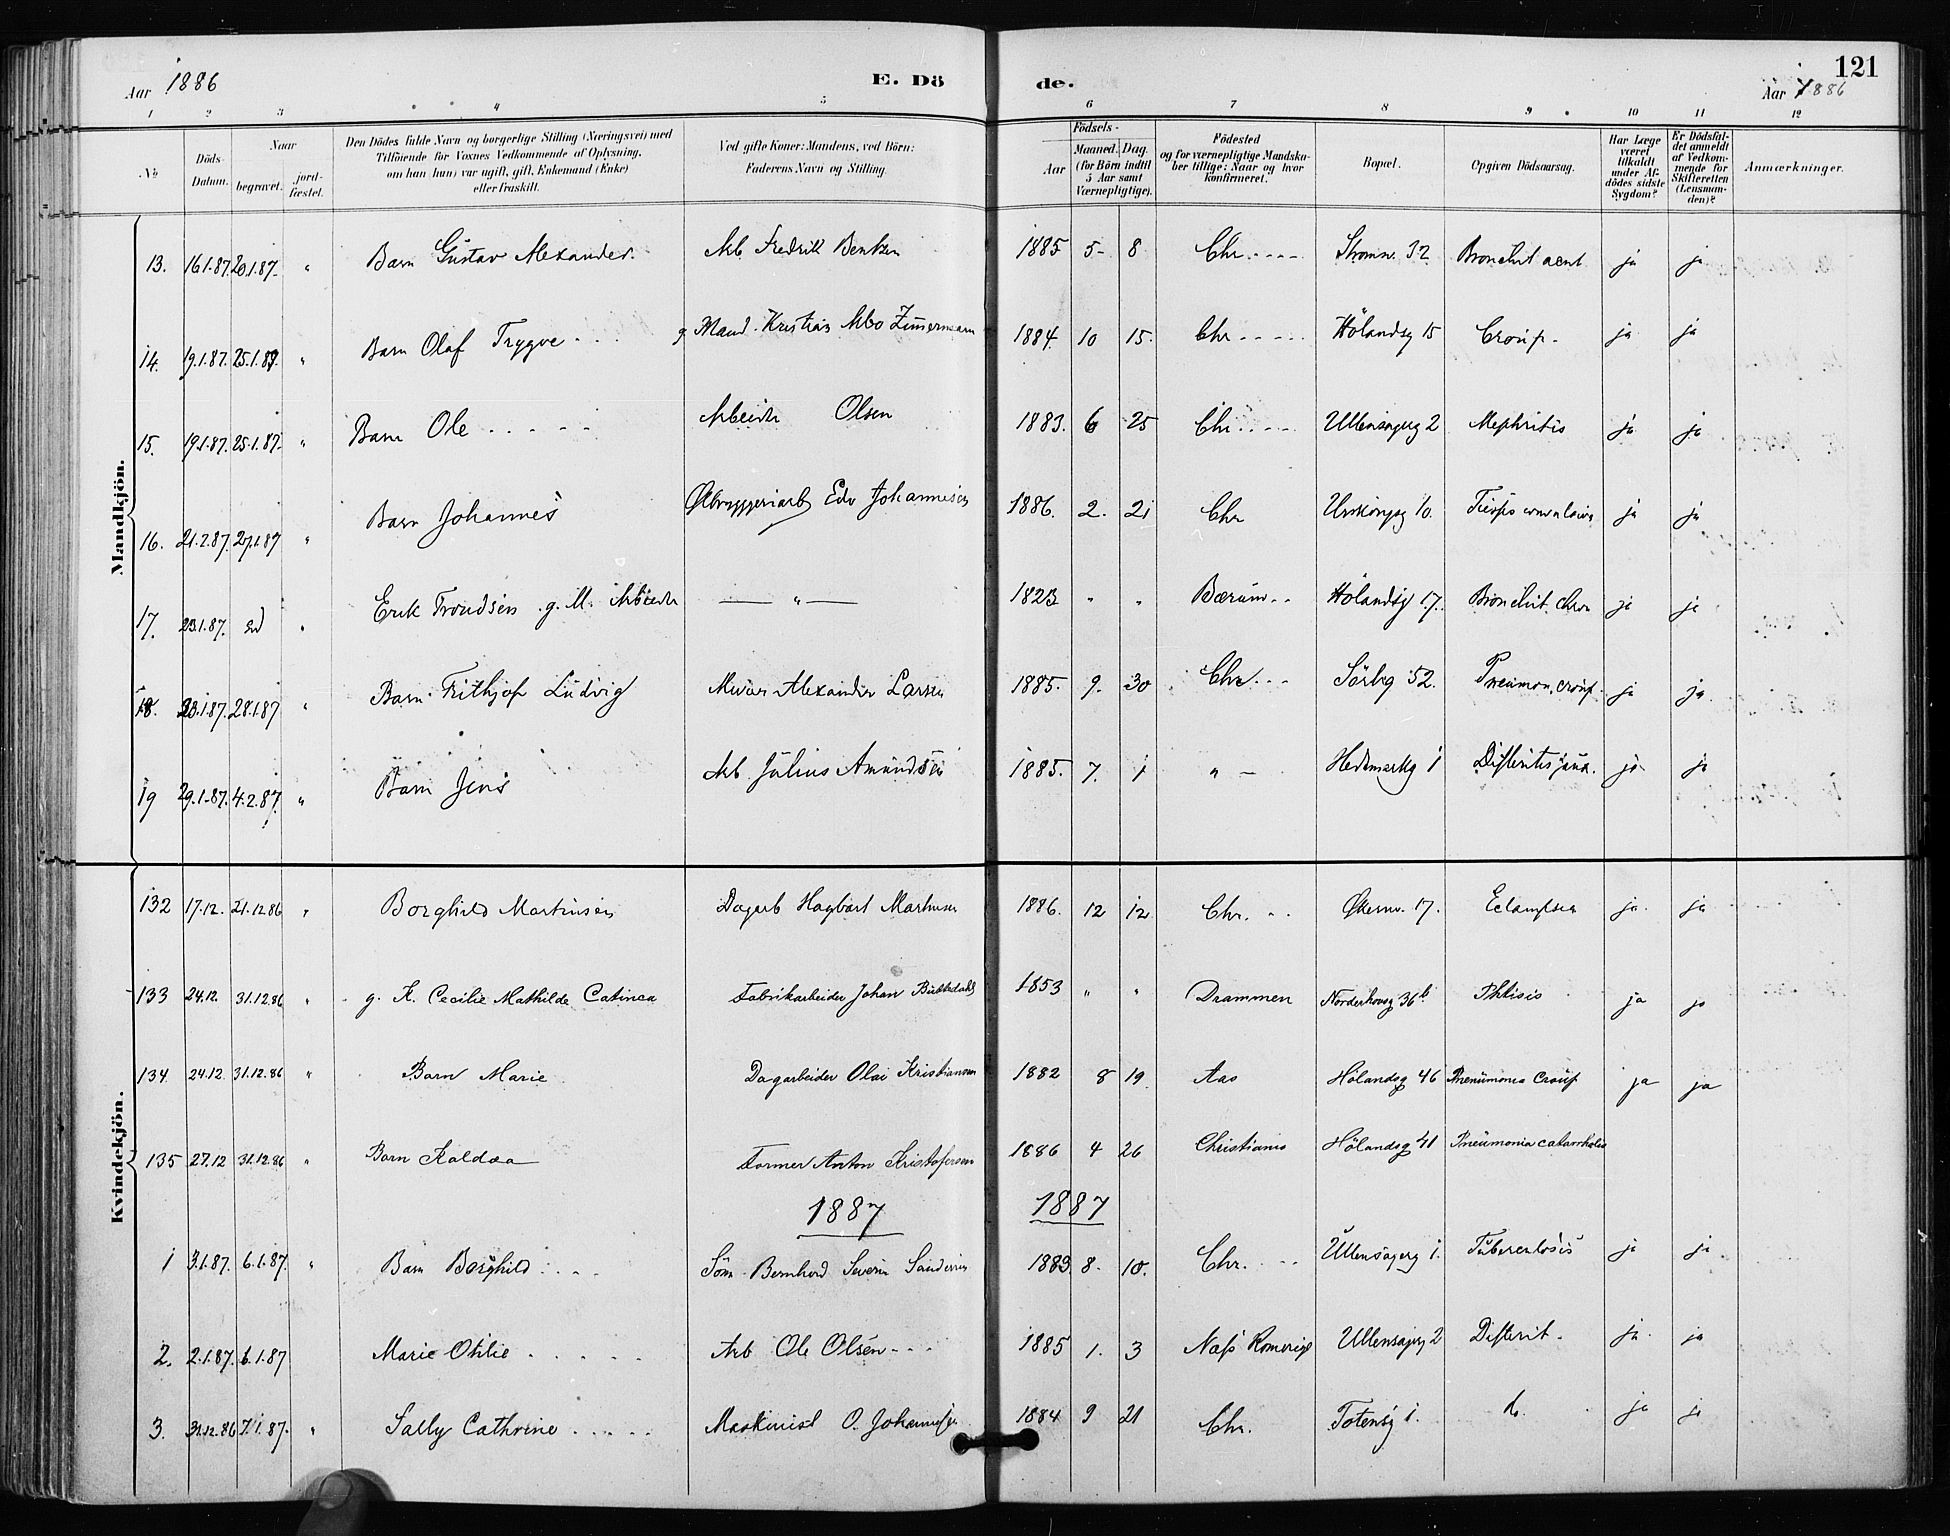 Aar 1886
E. Dö
de.
121
Aar 1886
1 2 3 4 5 6 7 8 9 10 11 12
No
Döds-Datum.
Naar
begravet.
jord-fæstet.
Den Dödes fulde Navn og borgerlige Stilling (Næringsvei) med
Tilföiende for Voxnes Vedkommende af Oplysning,
om han (hun) var ugift, gift, Enkemand (Enke)
eller fraskilt.
Ved gifte Koner: Mandens, ved Börn:
Faderens Navn og Stilling.
Födsels-
Aar
Maaned. Dag.
(for Börn indtil
5 Aar samt
Værnepligtige).
Födested
og for værnepligtige Mandska-
ber tillige: Naar og hvor
konfirmeret.
Bopæl.
Opgiven Dödsaarsag.
Har Læge
været
tilkaldt
under Af-
dödes sidste
Sygdom?
Er Dödsfal-
det anmeldt
af Vedkom-
mende for
Skifteretten
(Lensman-
den)?
Anmærkninger.
Mandkjön.
13. 16.1.87. 20.1.87. " Barn Gustav Alexander. Arb Fredrik Bentzen 1885 5- 8 Chr. Stromsv. 32 Bronchit acut ja ja
14. 19.1.87. 25.1.87. " Barn Olaf Trygve g Mand Kristian Zimermann 1884. 10 15. Chr Hölandsg 15 Croup. ja ja
15. 19.1.87. 25.1.87. " Barn Ole Arbeider Olsen 1883. 6 25 Chr. Ullensagerg 2 Nephritis ja ja
16. 21.1.87. 27.1.87 " Barn Johannes Ølbryggeriarb Edv Johannesen 1886. 2. 21 Chr Urskougg 10. ja ja
17. 23.1.87. " Erik Trondsen g. M. Arbeider — " — 1823 " " Bærum Hölandsg 17. Bronchit. chron ja ja
18. 23.1.87. 28.1.87 " Barn Frithjof Ludvig Murer Alexander Larsen 1885. 9. 30 Chr. Sörlig 52. Pneumon. croup. ja ja
19 29.1.87. 4.2.87. " Barn Jens Arb. Julius Amundsen 1885. 7. 1 " — Hedemarkg 1 ja ja
Kvindekjön.
132 17.12. 21.12.86 " Borghild Martinsen Dagarb Hagbart Martinsen 1886. 12 12 Chr. Økernv. 17. Eclampsia ja ja
133 24.12. 31.12.86 " g. K. Cecilie Mathilde Catinca Fabrikarbeider Johan 1853 " " Drammen Norderhovsg 36b Phtisis ja ja
134 24.12 31.12.86 " Barn Marie Dagarbeider Olai Kristiansen 1882 8 19 Aas Hölandsg 46 Pneumonia Croup ja ja
135 27.12 31.12.86 " Barn Kaldøa Former Anton Kristofersen 1886 4 26 Christiania Hölandsg 41 Pneumonia catarrhalis
1887 1887
1 3.1.87. 6.1.87. " Barn Borghild Söm Bernhard Severin 1883 8. 10. Chr. Ullensagerg 1. Tuberculosis ja ja
2. 2.1.87. 6.1.87 Marie Otilie Arb Ole Olsen 1885 1. 3 Næss Romerige Ullensagerg 2 Difterit. ja ja
3. 31.12.86 7.1.87. " Sally Cathrine Maskinist O. Johannesen 1884 9 21 Chr. Totensg 1. do. ja ja